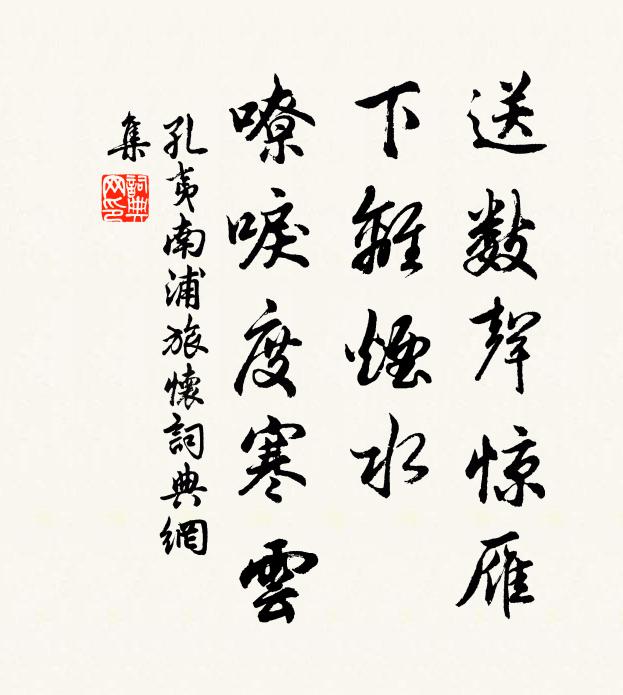 送數聲惊雁
下離煙水
嘹唳度寒雲
孔夷南浦旅懷詞典網
集
詞典網印